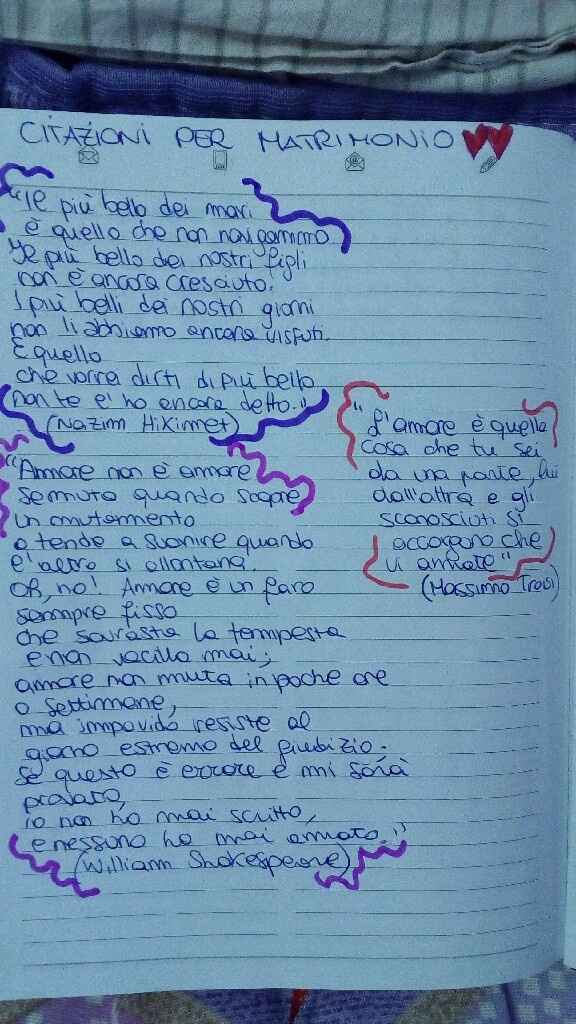 CITAZIONI PER MATRIMONIO
"Il più bello dei mari
è quello che non navigammo
Il più bello dei nostri figli
non è ancora cresciuto.
I più belli dei nostri giorni
non li abbiamo ancora vissuti.
E quello
che vorrei dirti di più bello
non te l'ho ancora detto."
(Nazim Hikmet)
"Amore non è amore
se muta quando scopre
un mutamento
o tende a svanire quando
l'altro si allontana.
Oh, no! Amore è un faro
sempre fisso
che sovrasta la tempesta
e non vacilla mai;
amore non muta in poche ore
o settimane,
ma impavido resiste al
giorno estremo del giudizio;
se questo è errore e mi sarà
provato,
io non ho mai scritto,
e nessuno ha mai amato."
(William Shakespeare)
"L'amore è quella
cosa che tu sei
da una parte, lui
dall'altra e gli
sconosciuti si
accorgono che
vi amate"
(Massimo Troisi)